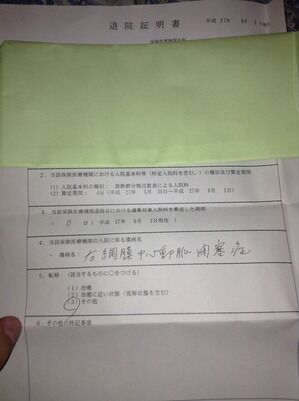 退院証明書
平成 27年 8月 2
2. 当該保険医療機関における入院基本料等（特定入院料を含む。）の種別及び算定期間
(1) 入院基本料の種別： 診断群分類点数表による入院料
(2) 算定期間： 4日（平成 27年 月 日～平成 27年 8月 2日）
3. 当該保険医療機関退院日における通算対象入院料を算定した期間
・ 0 日（平成 27年 8月 2日現在）
4. 当該保険医療機関の入院に係る傷病名
・ 傷病名： 右網膜中心動脈閉塞症
5. 転帰 （該当するものに○をつける）
(1) 治癒
(2) 治癒に近い状態（寛解状態を含む）
(3) その他
6. その他の特記事項